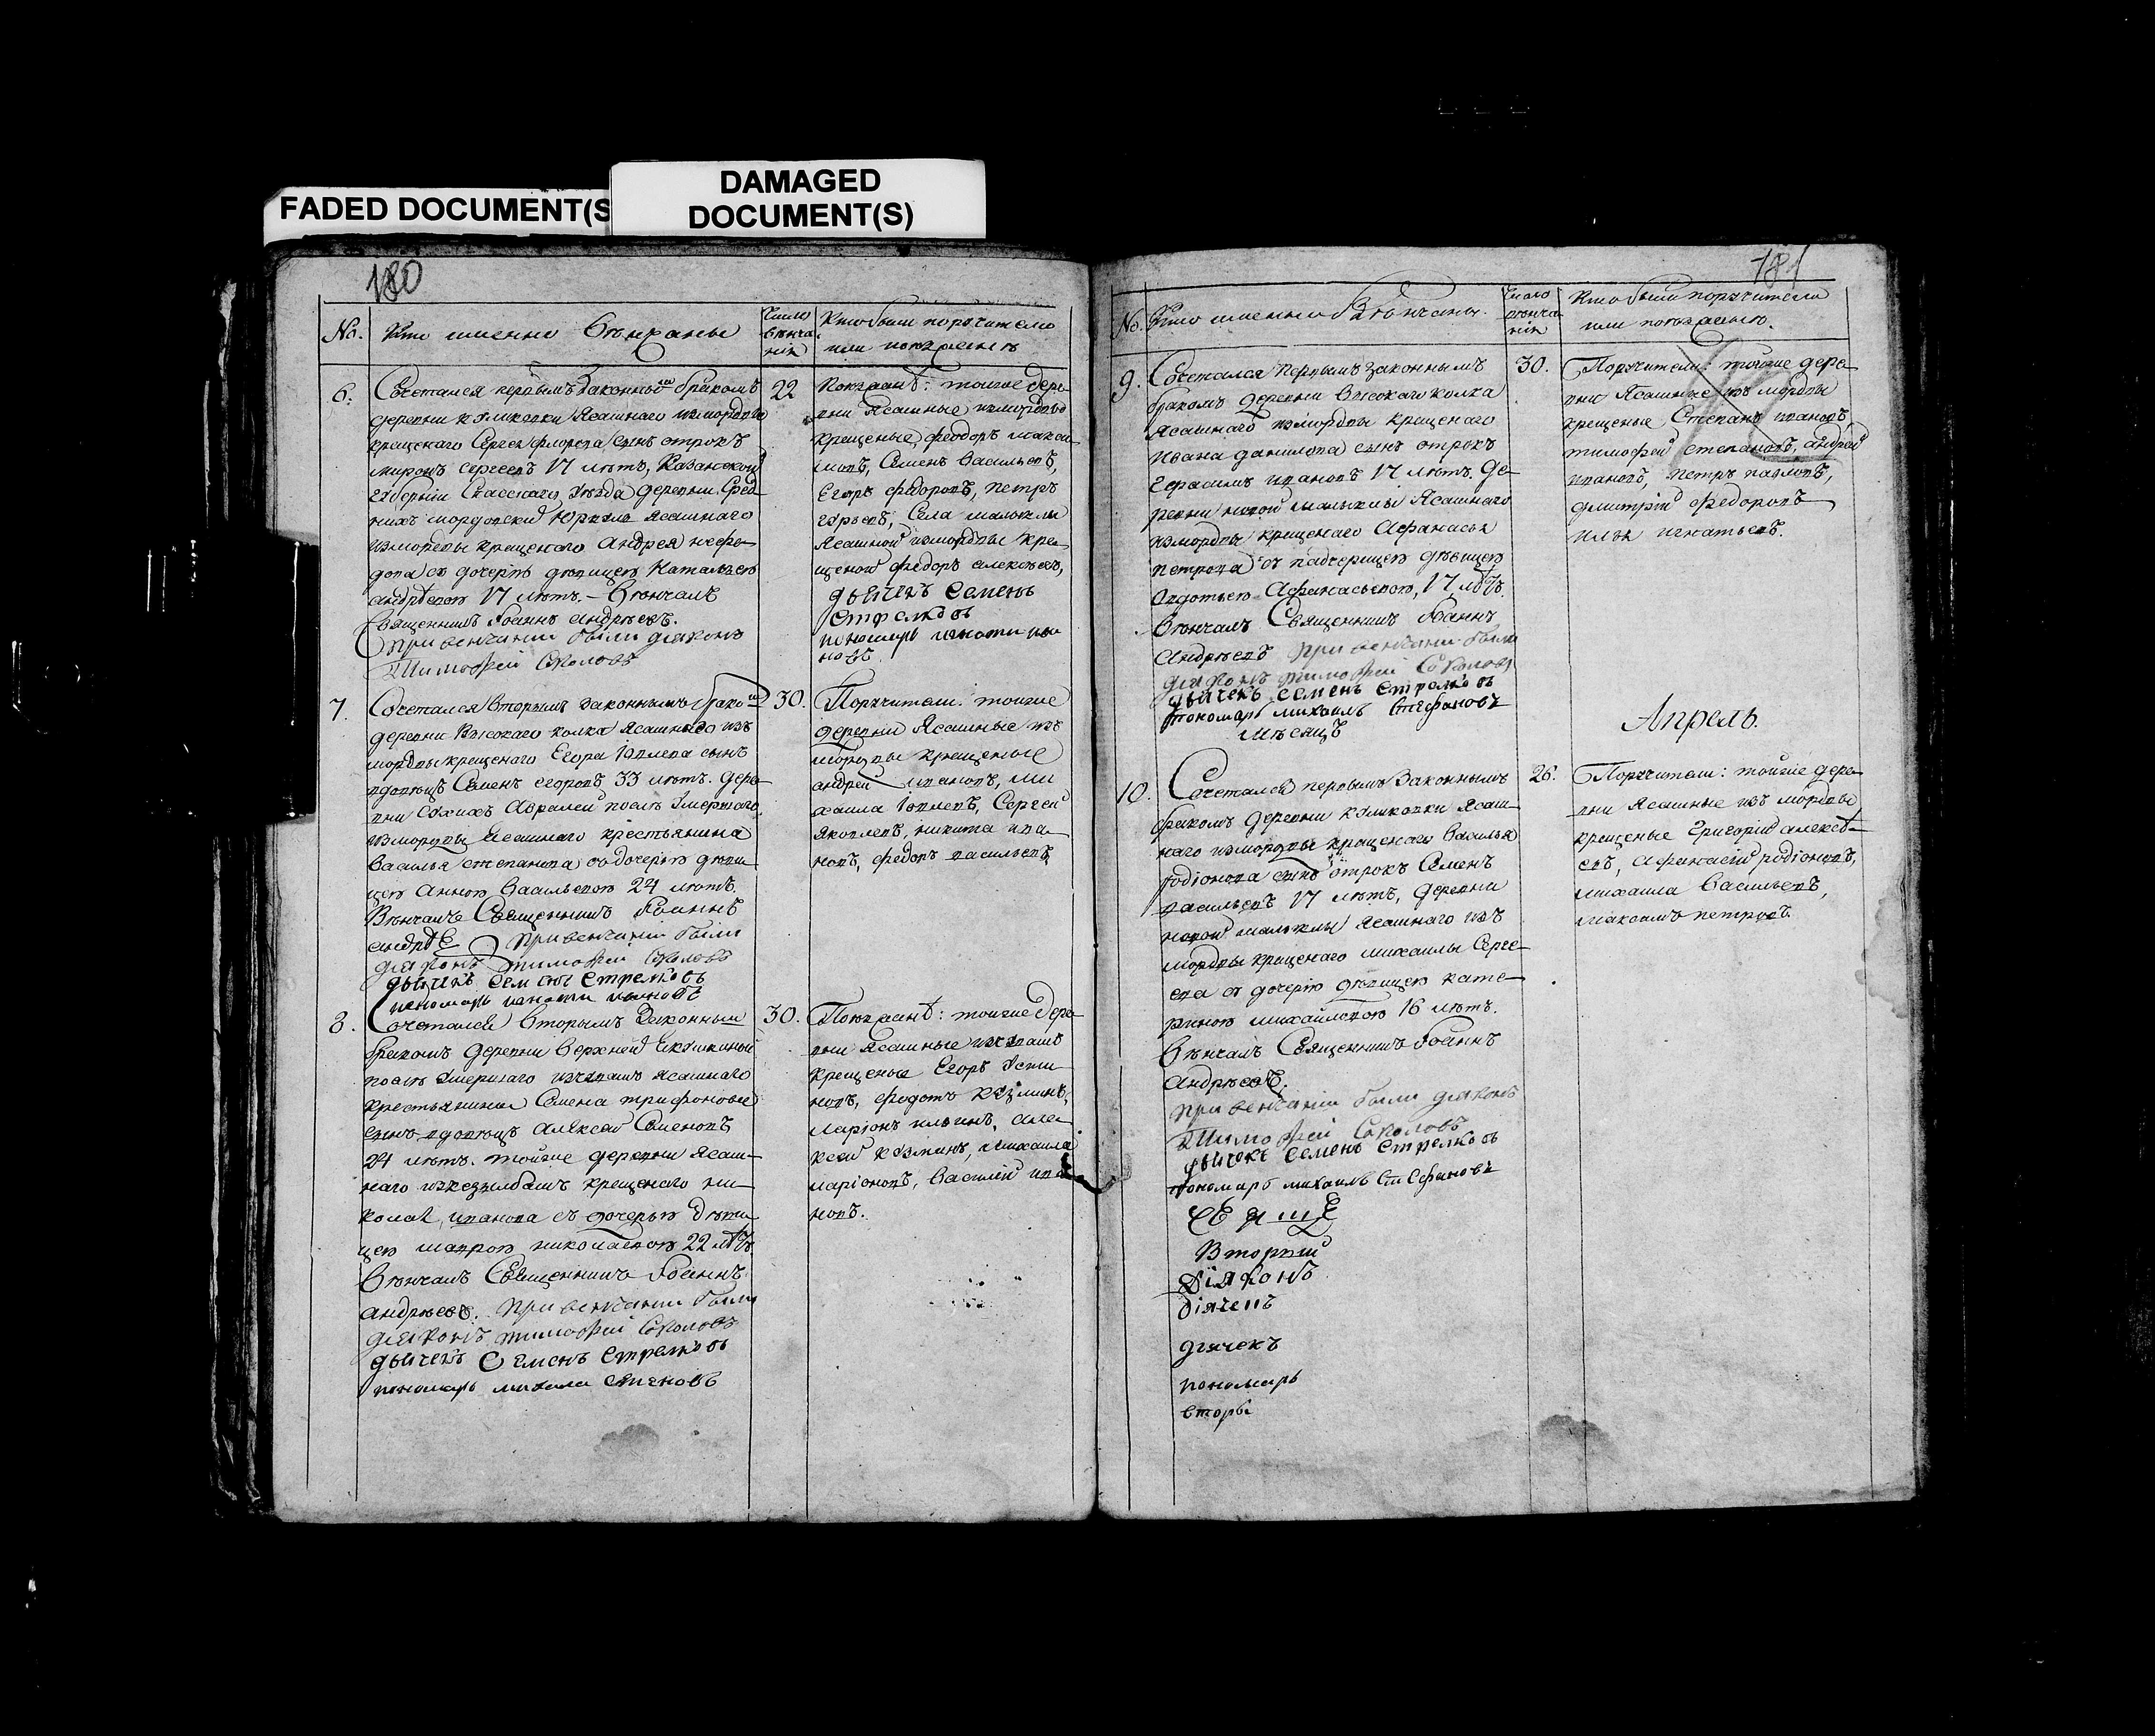 FADED DOCUMENT(S
DAMAGED
DOCUMENT(S)
180
No.
Кто именно Венчаны
Число
венча
нія
Кто были поручители
или поезжаныѣ
6.
Сочетался первымъ законнымъ бракомъ
деревни Куликовки Ясашнаго измордвы
крещенаго Сергея флорова сынъ отрокъ
миронъ сергеевъ 17 лѣтъ, Казанской
губерніи Спасскаго уѣзда деревни Сред
нихъ мордовски Юрткуль Ясашнаго
измордвы крещенаго Андрея нефе
дова съ дочерью девицею Натальею
андрѣевою 17 лѣтъ. – Вѣнчалъ
Священникъ Іоаннъ андрѣевъ.
При венчании были диаконъ
Тимофей Соколовъ
22
Поезжанѣ: тойже дере
вни Ясашные измордвы
крещеные, феодоръ макси
мовъ, Семенъ васильевъ,
Егоръ федоровъ, петръ
гурьевъ, Села малыклы
Ясашной измордвы кре
щеной федоръ алексѣевъ,
дьячекъ Семенъ
стрелковъ
пономарь
7.
Сочетался вторымъ законнымъ бракомъ
деревни Высокаго колка Ясашнаго изъ
мордвы крещенаго Егора Іовлева сынъ
вдовецъ Семенъ егоровъ 33 лѣтъ. дере
вни Сухихъ Авралей послѣ умершаго
измордвы Ясашнаго крестьянина
Василья степанова съ дочерью деви
цею Анною Васильевою 24 лѣтъ.
Вѣнчалъ Священникъ Іоаннъ
андрѣе При венчании были
диаконъ тимофей Соколовъ
дьячекъ Семенъ Стрелковъ
пономарь
30.
Поручители: тойже
деревни Ясашные изъ
мордвы крещеные
андрей ивановъ, ми
хаила Іовлевъ, Сергей
яковлевъ, никита ива
новъ, федоръ васильевъ
8.
Сочетался вторымъ законнымъ
бракомъ деревни верхней Якушкиной
послѣ умершаго изчувашъ ясашнаго
крестьянина Семена трифонова
сынъ вдовецъ Алексей Семеновъ
24 лѣтъ. тойже деревни Ясаш
наго изкезылбашъ крещенаго ни
колая, иванова съ дочерью деви
цею маврою николаевою 22 лѣтъ.
Вѣнчалъ Священникъ Іоаннъ
андрѣевъ. При венчании были
диаконъ тимофей Соколовъ
дьячекъ Семенъ стрелковъ
пономарь михаила
30.
Поезжанѣ: тойже дере
вни Ясашные изчувашъ
крещеные Егоръ Усти
новъ, федотъ кузминъ,
ларіонъ ильинъ, але
ксей кузминъ, михаила
ларіоновъ, василій ива
новъ.
181
No.
Кто именно Венчаны.
Число
венча
нія
Кто были поручители
или поезжаныѣ.
9.
Сочетался первымъ законнымъ
бракомъ деревни Высокаго колка
Ясашнаго измордвы крещенаго
Ивана данилова сынъ отрокъ
Герасимъ ивановъ 17 лѣтъ. де
ревни новой малыклы Ясашнаго
измордвы крещенаго Афанасья
петрова съ падчерицею девицею
Авдотьею Афанасьевою, 17 лѣтъ.
Вѣнчалъ Священникъ Іоаннъ
Андрѣевъ При венчани были
диаконъ тимофей Соколовъ
дьячекъ семенъ стрелковъ
пономарь михаилъ Стефановъ
мѣсяцъ
30.
Поручители: тойже дере
вни Ясашные изъ мордвы
крещеные Степанъ ивановъ
тимофей степановъ, андрей
ивановъ, петръ павловъ,
дмитрій федоровъ
илья игнатьевъ.
Апрель.
10.
Сочетался первымъ законнымъ
бракомъ деревни Куликовки Ясаш
наго измордвы крещенаго василья
родіонова сынъ отрокъ Семенъ
васильевъ 17 лѣтъ, деревни
новой малыклы Ясашнаго изъ
мордвы крещенаго михаилы Серге
ева съ дочерью девицею кате
риною михайловою 16 лѣтъ.
Вѣнчалъ Священникъ Іоаннъ
андрѣевъ.
При венчании были диаконъ
Тимофей Соколовъ
дьячекъ Семенъ Стрелковъ
пономарь михаилъ Стефановъ
Вторый
Діяконъ
діячепъ
дгячекъ
пономарь
вторы
26.
Поручители: тойже дере
вни Ясашные изъ мордвы
крещеные Григорій алексѣ
евъ, Афанасій родіоновъ,
михаила Васильевъ,
максимъ петровъ.